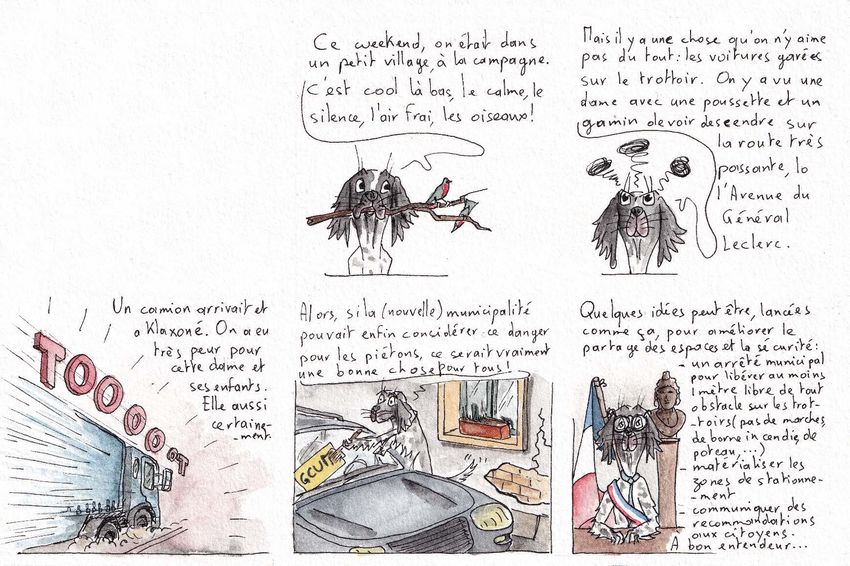 Ce weekend, on était dans
un petit village, à la campagne.
C'est cool là bas, le calme, le
silence, l'air frai, les oiseaux!
Mais il y a une chose qu'on n'y aime
pas du tout: les voitures garées
sur le trottoir. On y a vu une
dame avec une poussette et un
gamin devoir descendre sur
la route très
passante, la
l'Avenue du
Général
Leclerc.
Un camion arrivait et
a klaxoné. On a eu
très peur pour
cette dame et
ses enfants.
Elle aussi
certaine-
-ment
TOOOOOOT
Alors, si la (nouvelle) municipalité
pouvait enfin concidérer ce danger
pour les piétons, ce serait vraiment
une bonne chose pour tous!
GCUM
Quelques idées peut être, lancées
comme ça, pour améliorer le
partage des espaces et la sécurité:
- un arrêté municipal
pour libérer au moins
1 mètre libre de tout
obstacle sur les trot-
-toirs (pas de marches,
de borne incendie, de
poteau,...)
- matérialiser les
zones de stationne-
-ment
- communiquer des
recommandations
aux citoyens.
A bon entendeur...